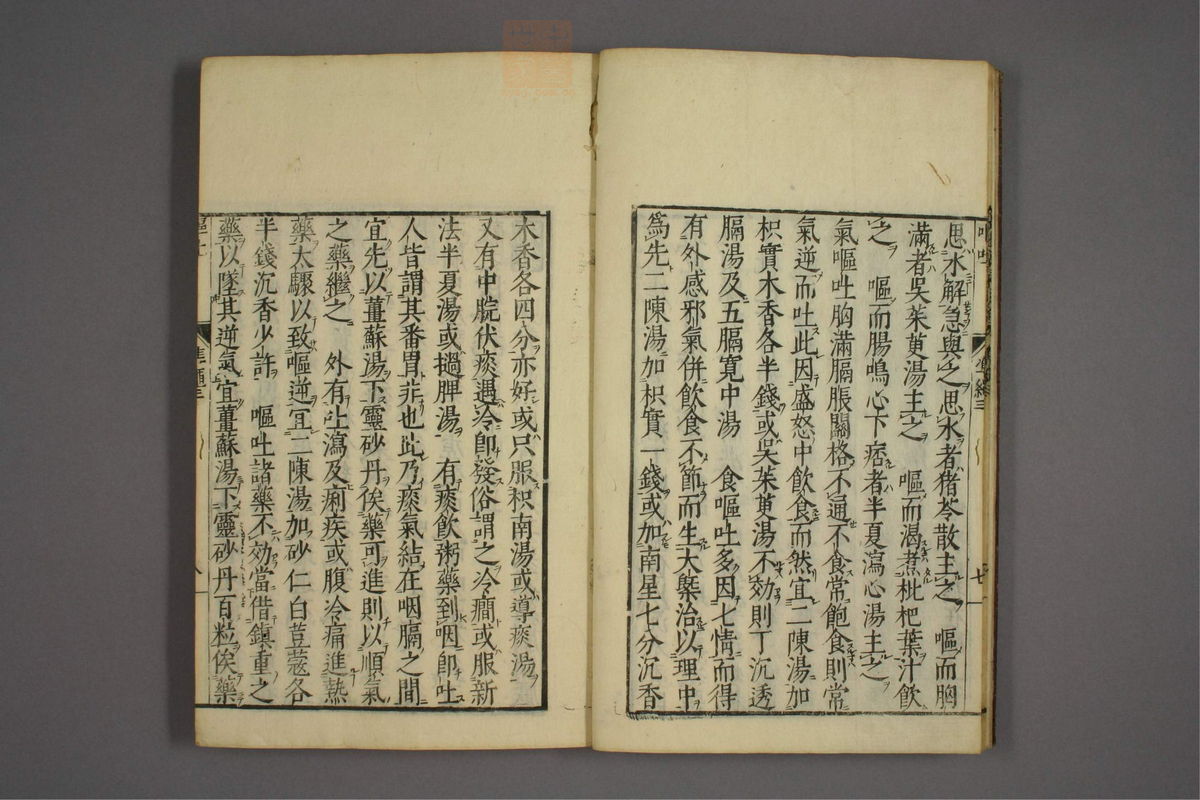 思水解急與之思水者猪苓散主之　嘔而胸
滿者吳茱萸湯主之　嘔而渴煮枇杷葉汁飲
之　嘔而腸鳴心下痞者半夏瀉心湯主之
氣嘔吐胸滿膈脹關格不通不食常飽食則常
氣逆而吐此因盛怒中飲食而然宜二陳湯加
枳實木香各半錢或吳茱萸湯不効則丁沉透
膈湯及五膈寬中湯　食嘔吐多因七情而得
有外感邪氣併飲食不節而生大槩治以理中
爲先二陳湯加枳實一錢或加南星七分沉香
木香各四分亦好或只服枳南湯或導痰湯
又有中脘伏痰遇冷即發俗謂之冷癇或服新
法半夏湯或撾脾湯　有痰飲粥藥到咽即吐
人皆謂其番胃非也此乃痰氣結在咽膈之間
宜先以薑蘇湯下靈砂丹俟藥可進則以順氣
之藥繼之　外有吐瀉及痢疾或腹冷痛進熱
藥太驟以致嘔逆宜二陳湯加砂仁白荳蔻各
半錢沉香少許　嘔吐諸藥不効當借鎮重之
藥以墜其逆氣宜薑蘇湯下靈砂丹百粒俟藥